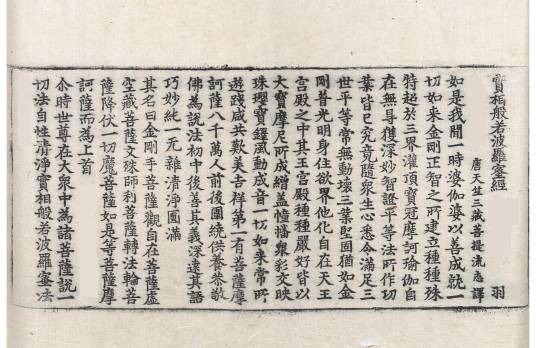 實相般若波羅蜜經
唐天竺三藏菩提流志譯 羽
如是我聞一時婆伽婆以善成就一
切如来金剛正智之所建立種種殊
特超於三界灌頂寶冠摩訶瑜伽自
在無㝵獲深妙智證平等法所作功
業皆已究竟隨衆生心悉令滿足三
世平等常無動壞三業堅固猶如金
剛普光明身住欲界他化自在天王
宮殿之中其王宮殿種種嚴好皆以
大寶摩尼所成繒盖幢幡衆彩交映
珠瓔寶鐸風動成音一切如来常所
遊踐咸共歎美吉祥第一有菩薩摩
訶薩八千萬人前後圍繞供養恭敬
佛為說法初中後善其義深遠其語
巧妙純一无雜清淨圓滿
其名曰金剛手菩薩觀自在菩薩虛
空藏菩薩文殊師利菩薩轉法輪菩
薩降伏一切魔菩薩如是等菩薩摩
訶薩而為上首
尒時世尊在大衆中為諸菩薩說一
切法自性清淨實相般若波羅蜜法